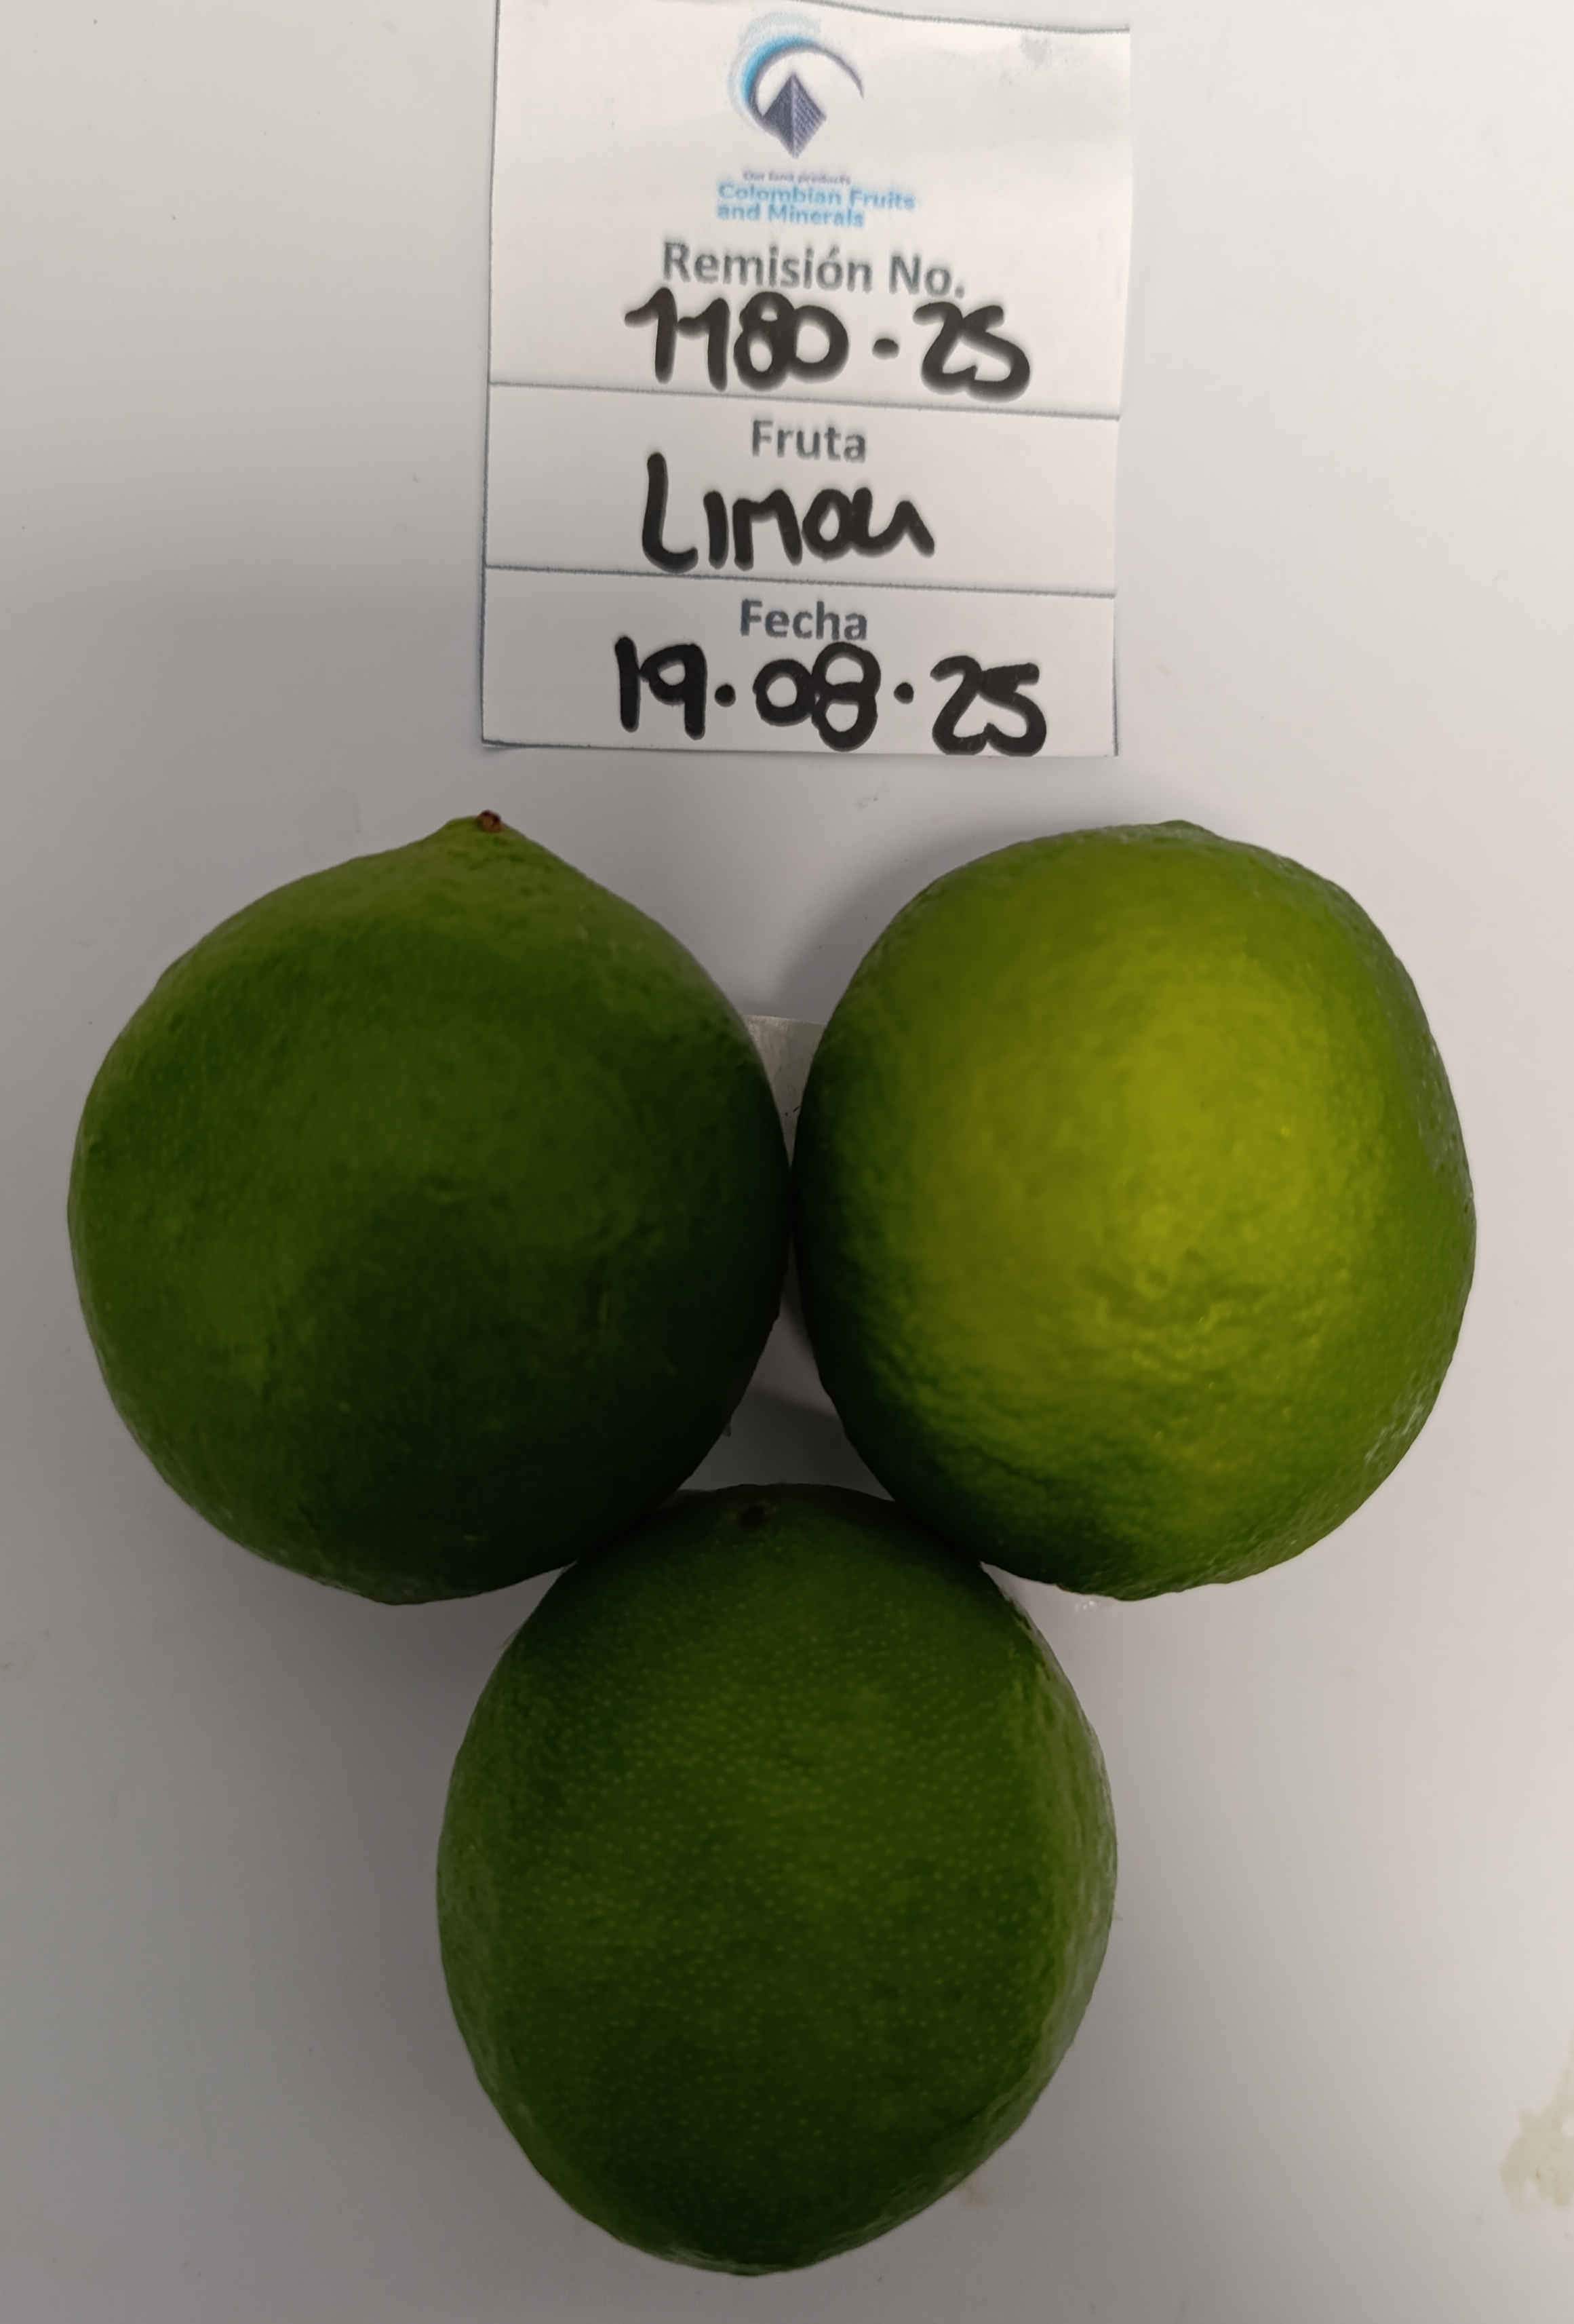 Our land products
Colombian Fruits
and Minerals
Remisión No.
1180.25
Fruta
Limon
Fecha
19.08.25